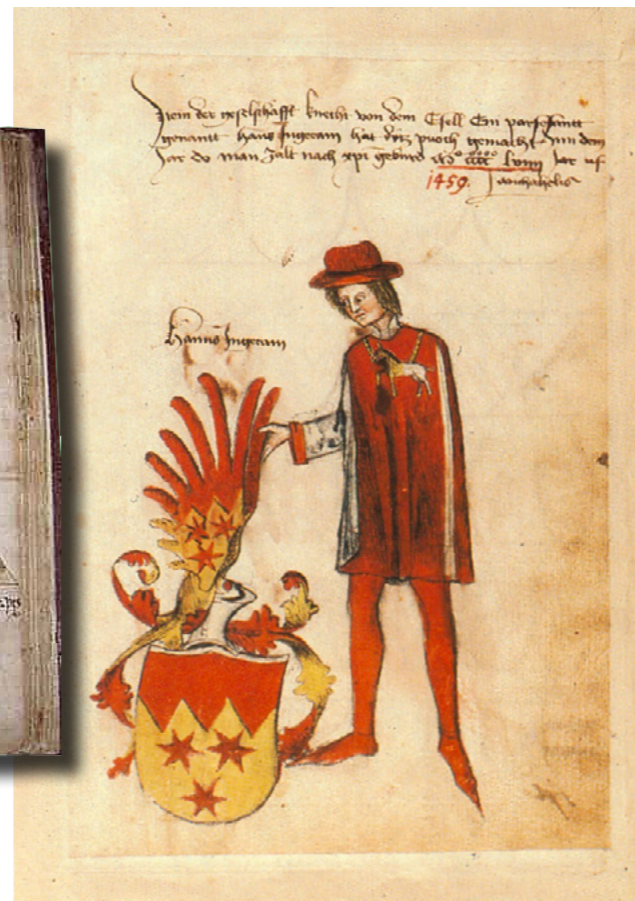 Item der geselschafft knecht von dem Esell Ein parsefant
genant hans Ingeram hat ditz puoch gemacht Inn dem
Jar do man Zalt nach xpi geburd Mº cccc lviiii Jar uf
1459. michahelis
Hanns Ingeram